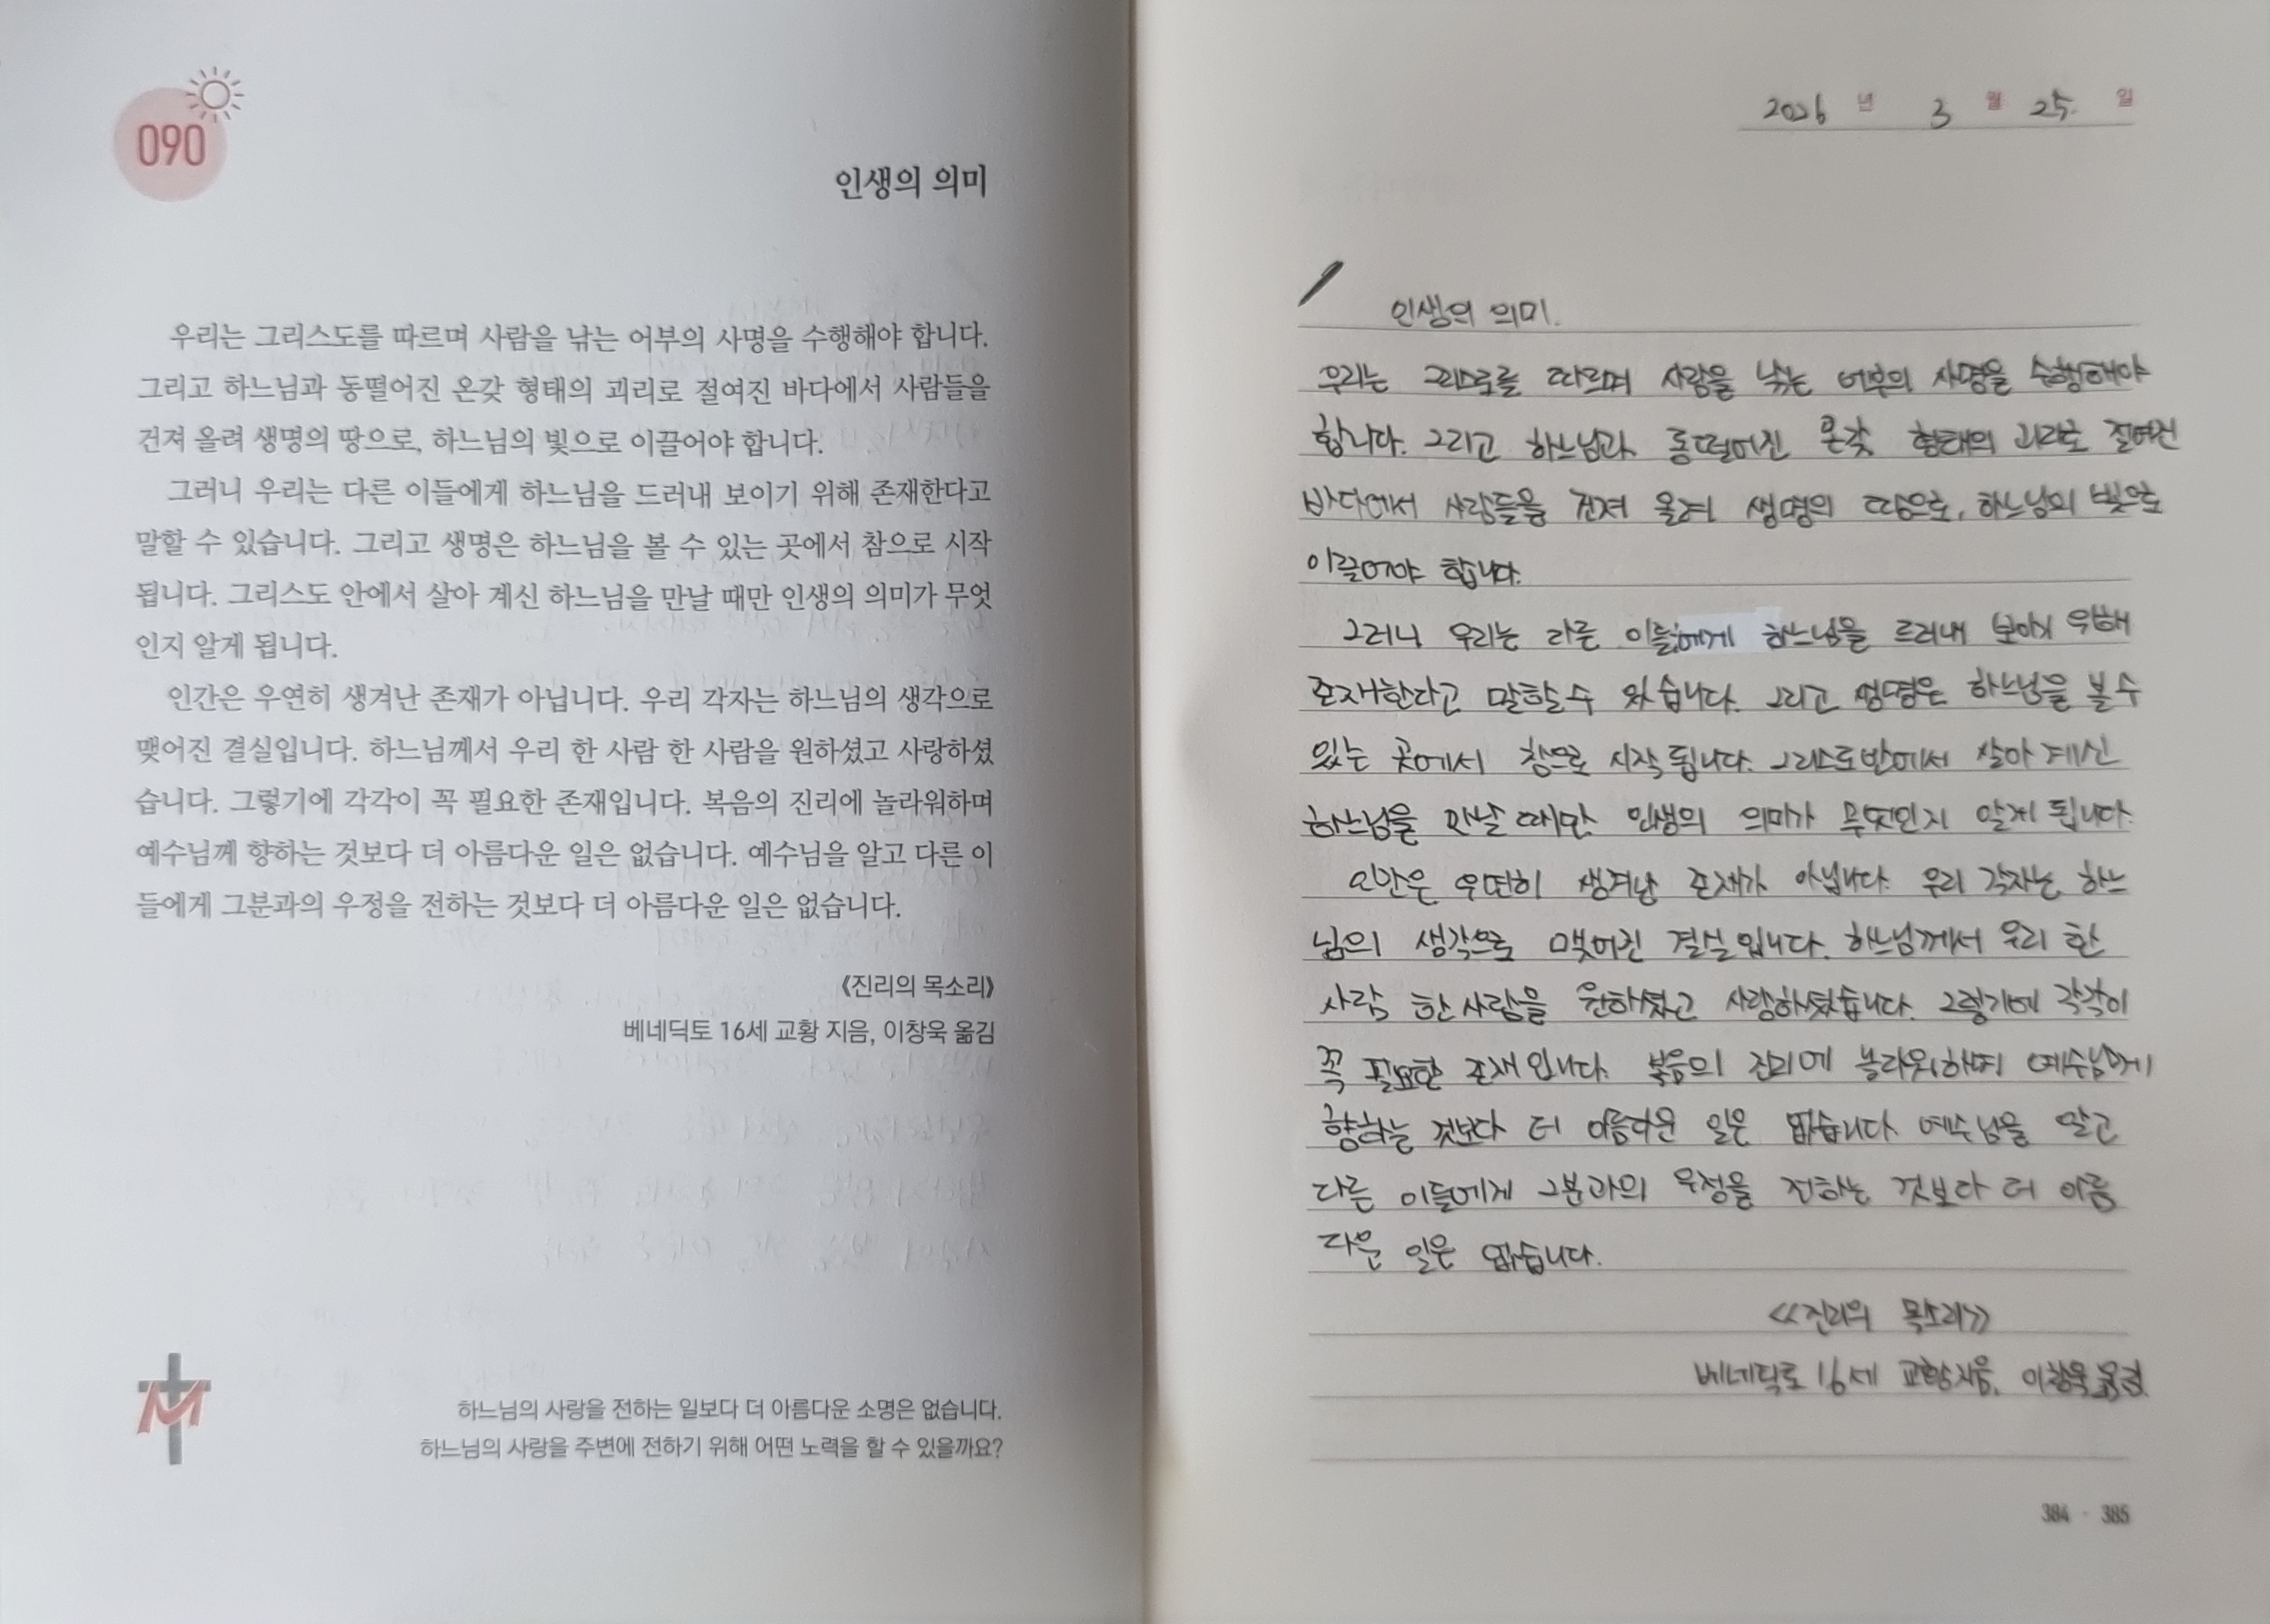 090
인생의 의미
우리는 그리스도를 따르며 사람을 낚는 어부의 사명을 수행해야 합니다.
그리고 하느님과 동떨어진 온갖 형태의 괴리로 절여진 바다에서 사람들을
건져 올려 생명의 땅으로, 하느님의 빛으로 이끌어야 합니다.
그러니 우리는 다른 이들에게 하느님을 드러내 보이기 위해 존재한다고
말할 수 있습니다. 그리고 생명은 하느님을 볼 수 있는 곳에서 참으로 시작
됩니다. 그리스도 안에서 살아 계신 하느님을 만날 때만 인생의 의미가 무엇
인지 알게 됩니다.
인간은 우연히 생겨난 존재가 아닙니다. 우리 각자는 하느님의 생각으로
맺어진 결실입니다. 하느님께서 우리 한 사람 한 사람을 원하셨고 사랑하셨
습니다. 그렇기에 각각이 꼭 필요한 존재입니다. 복음의 진리에 놀라워하며
예수님께 향하는 것보다 더 아름다운 일은 없습니다. 예수님을 알고 다른 이
들에게 그분과의 우정을 전하는 것보다 더 아름다운 일은 없습니다.
《진리의 목소리》
베네딕토 16세 교황 지음, 이창욱 옮김
하느님의 사랑을 전하는 일보다 더 아름다운 소명은 없습니다.
하느님의 사랑을 주변에 전하기 위해 어떤 노력을 할 수 있을까요?
2026 년 3 월 25. 일
인생의 의미.
우리는 그리스도를 따르며 사람을 낚는 어부의 사명을 수행해야
합니다. 그리고 하느님과 동떨어진 온갖 형태의 괴리로 절여진
바다에서 사람들을 건져 올려 생명의 땅으로, 하느님의 빛으로
이끌어야 합니다.
그러니 우리는 다른 이들에게 하느님을 드러내 보이기 위해
존재한다고 말할 수 있습니다. 그리고 생명은 하느님을 볼 수
있는 곳에서 참으로 시작 됩니다. 그리스도 안에서 살아 계신
하느님을 만날 때만 인생의 의미가 무엇인지 알게 됩니다.
인간은 우연히 생겨난 존재가 아닙니다. 우리 각자는 하느
님의 생각으로 맺어진 결실입니다. 하느님께서 우리 한
사람 한 사람을 원하셨고 사랑하셨습니다. 그렇기에 각각이
꼭 필요한 존재입니다. 복음의 진리에 놀라워하며 예수님께
향하는 것보다 더 아름다운 일은 없습니다. 예수님을 알고
다른 이들에게 그분과의 우정을 전하는 것보다 더 아름
다운 일은 없습니다.
《진리의 목소리》
베네딕토 16세 교황 지음, 이창욱 옮김.
384 · 385